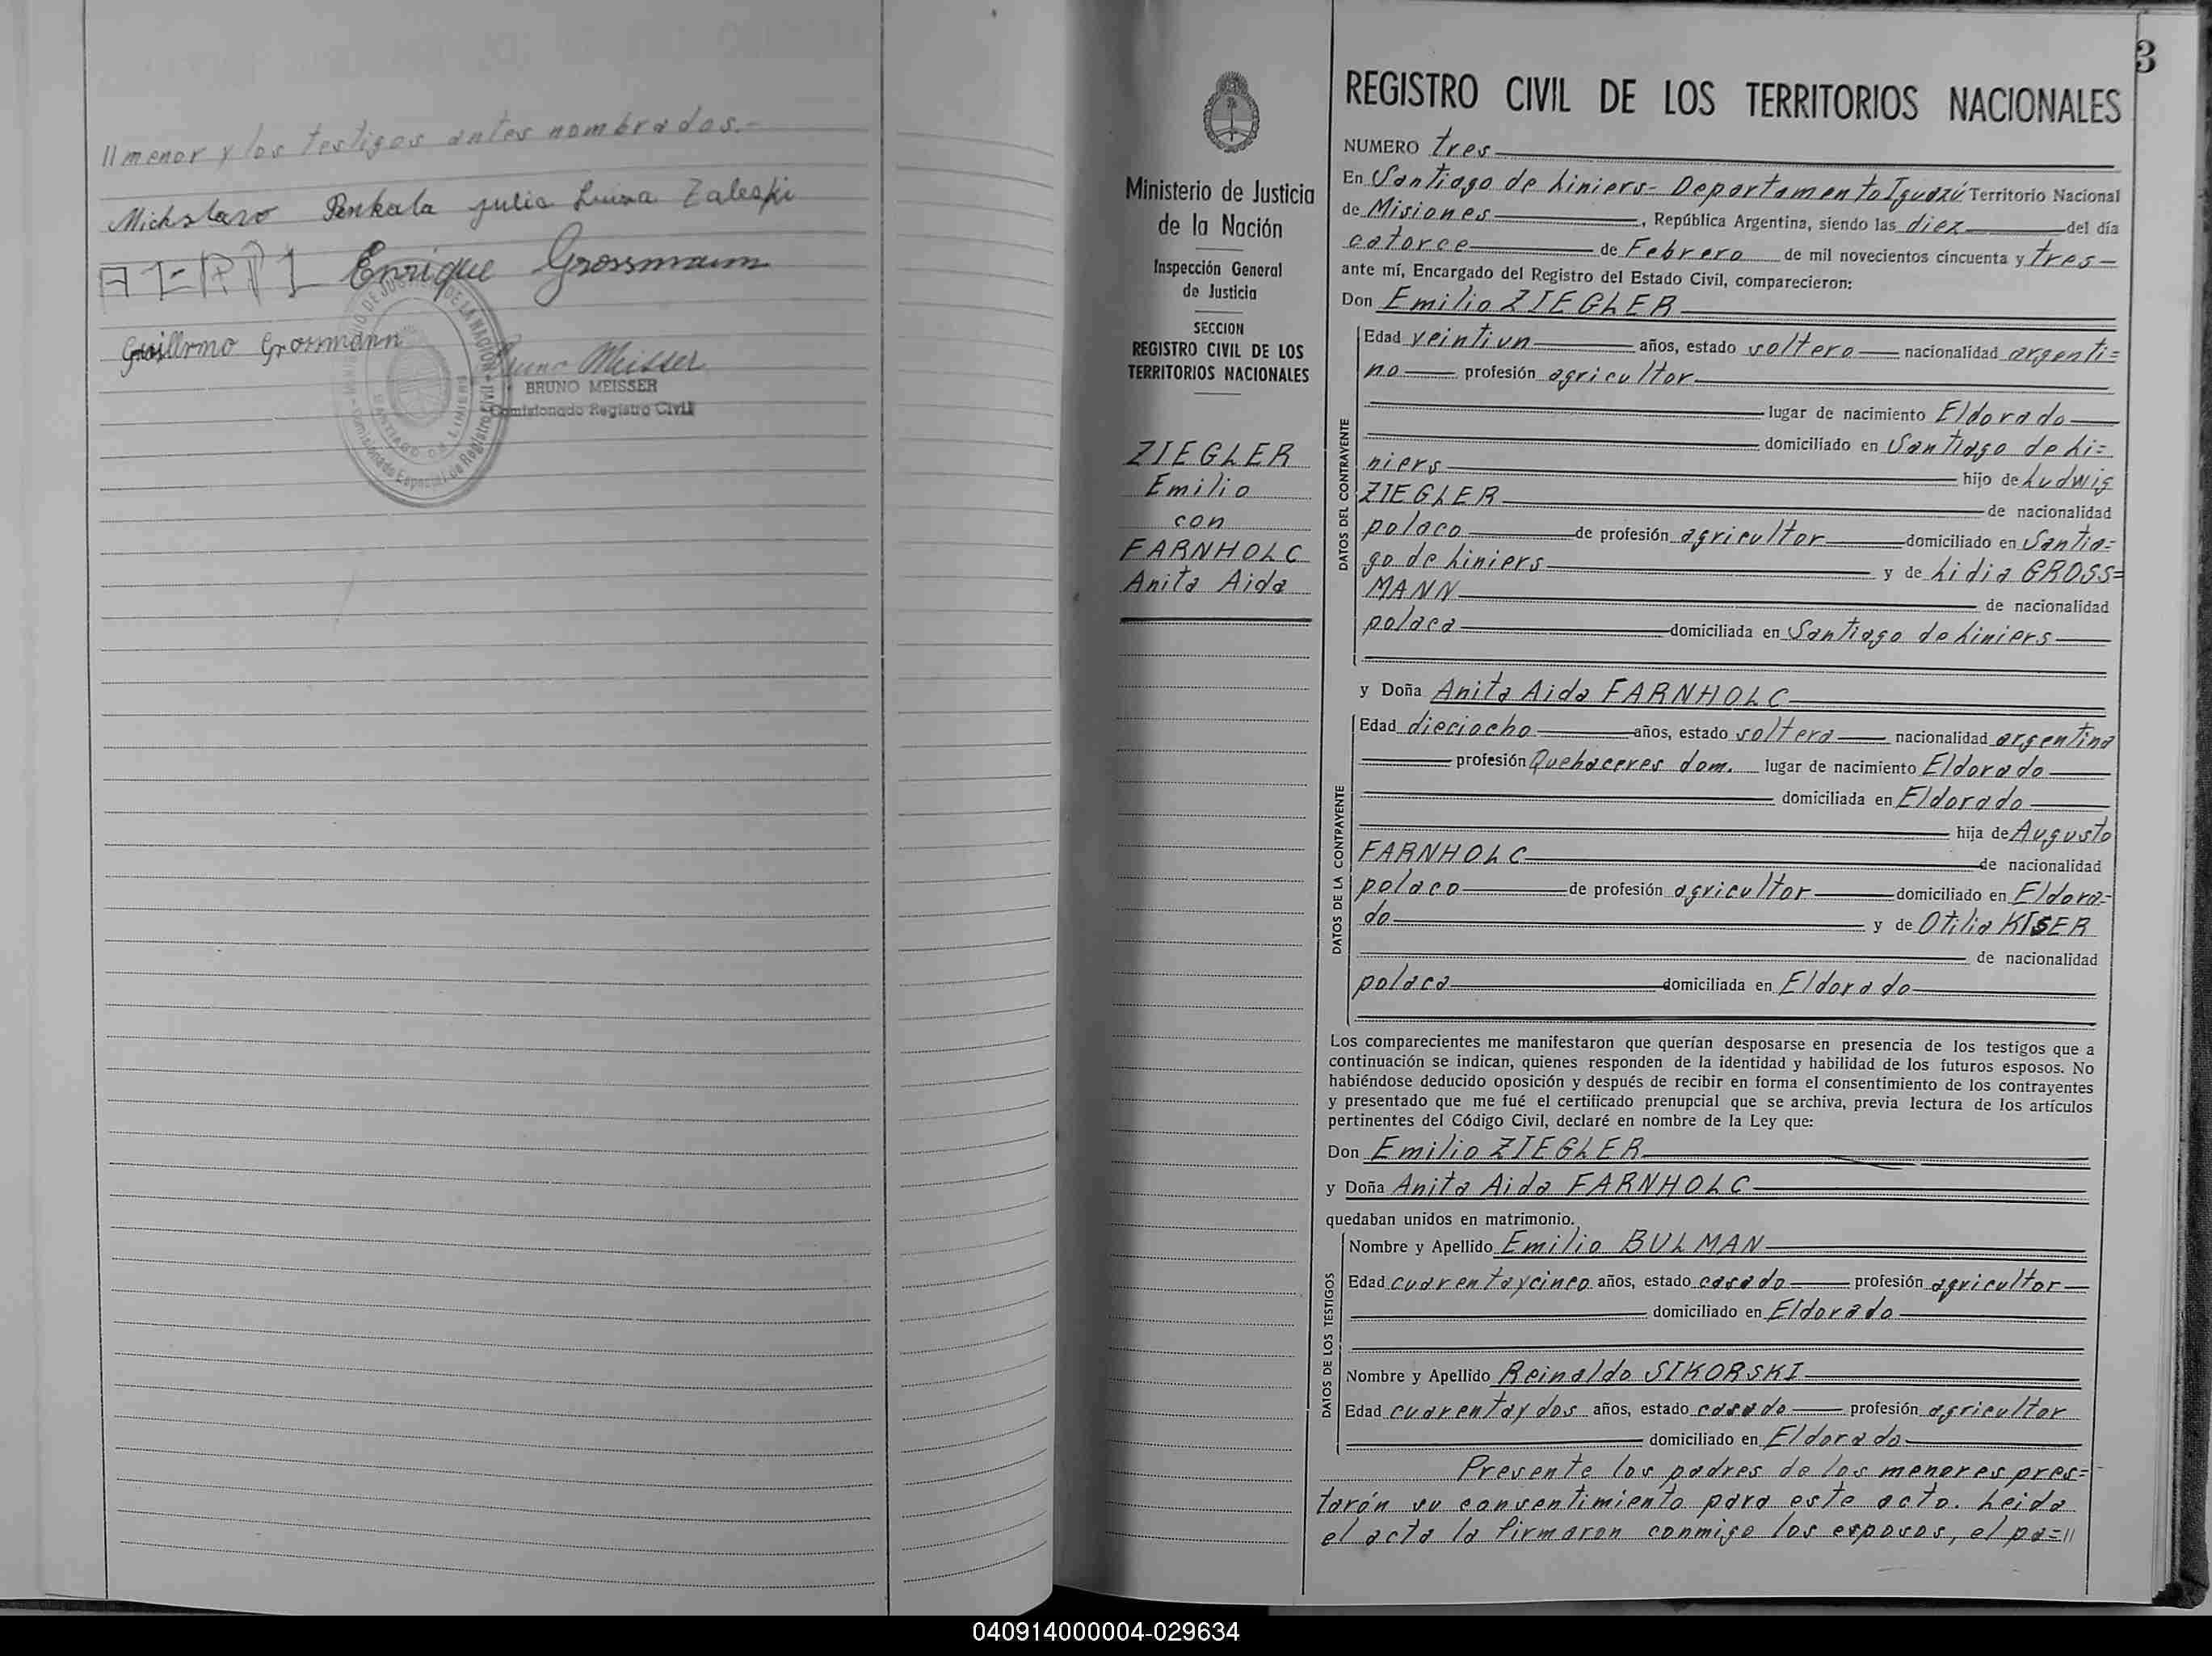 // menor y los testigos antes nombrados.-
Penkala Julia Luisa Zaleski
Enrique Grossmann
Guillermo Grossmann
Bruno Meisser
BRUNO MEISSER
Comisionado Registro Civil
3
Ministerio de Justicia
de la Nación
Inspección General
de Justicia
SECCION
REGISTRO CIVIL DE LOS
TERRITORIOS NACIONALES
ZIEGLER
Emilio
con
FARNHOLC
Anita Aida
REGISTRO CIVIL DE LOS TERRITORIOS NACIONALES
NUMERO tres
En Santiago de Liniers- Departamento Iguazú Territorio Nacional
de Misiones, República Argentina, siendo las diez del día
catorce de Febrero de mil novecientos cincuenta y tres-
ante mí, Encargado del Registro del Estado Civil, comparecieron:
Don Emilio ZIEGLER
DATOS DEL CONTRAYENTE
Edad veintiun años, estado soltero nacionalidad argenti=
no profesión agricultor
lugar de nacimiento Eldorado
domiciliado en Santiago de Li=
niers hijo de Ludwig
ZIEGLER de nacionalidad
polaco de profesión agricultor domiciliado en Santia=
go de Liniers y de Lidia GROSS=
MANN de nacionalidad
polaca domiciliada en Santiago de Liniers
y Doña Anita Aida FARNHOLC
DATOS DE LA CONTRAYENTE
Edad dieciocho años, estado soltera nacionalidad argentina
profesión Quehaceres dom. lugar de nacimiento Eldorado
domiciliada en Eldorado
hija de Augusto
FARNHOLC de nacionalidad
polaco de profesión agricultor domiciliado en Eldora=
do y de Otilia KISER
de nacionalidad
polaca domiciliada en Eldorado
Los comparecientes me manifestaron que querían desposarse en presencia de los testigos que a
continuación se indican, quienes responden de la identidad y habilidad de los futuros esposos. No
habiéndose deducido oposición y después de recibir en forma el consentimiento de los contrayentes
y presentado que me fué el certificado prenupcial que se archiva, previa lectura de los artículos
pertinentes del Código Civil, declaré en nombre de la Ley que:
Don Emilio ZIEGLER
y Doña Anita Aida FARNHOLC
quedaban unidos en matrimonio.
DATOS DE LOS TESTIGOS
Nombre y Apellido Emilio BULMAN
Edad cuarenta y cinco años, estado casado profesión agricultor
domiciliado en Eldorado
Nombre y Apellido Reinaldo SIKORSKI
Edad cuarenta y dos años, estado casado profesión agricultor
domiciliado en Eldorado
Presente los padres de los menores pres=
tarón su consentimiento para este acto. Leida
el acta la firmaron conmigo los esposos, el pa=//
040914000004-029634